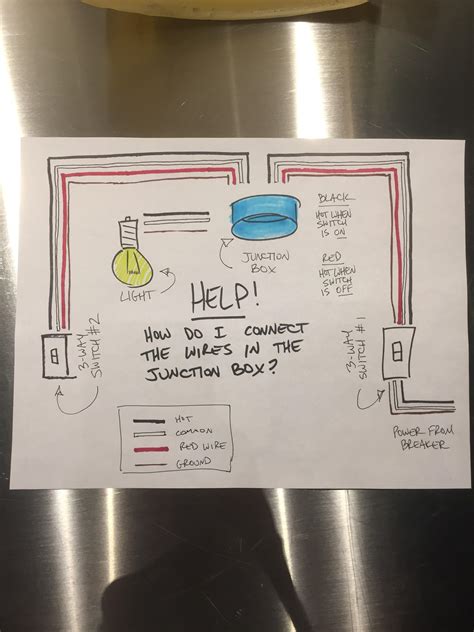 BLACK
HOT WHEN
SWITCH
IS ON
RED
HOT WHEN
SWITCH
IS OFF
JUNCTION
BOX
LIGHT
HELP!
HOW DO I CONNECT
THE WIRES IN THE
JUNCTION BOX?
3-WAY
SWITCH #2
3-WAY
SWITCH #1
POWER FROM
BREAKER
HOT
COMMON
RED WIRE
GROUND